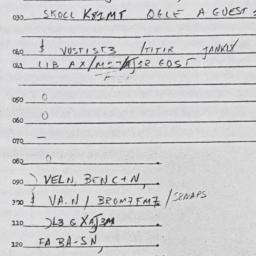 030 SKOCL K81MT OGLE A GUEST
040 $ VUSTIST3 /TITIR JANKLY
041 LIB AX/ EOST
050 0
060 0
070 —
080 0
090 ) VELN, BENC+N,
$ VA.N / BROM7FM7 / SENAPS
110 )L3 G XAJ3M
120 FA BA-SN,